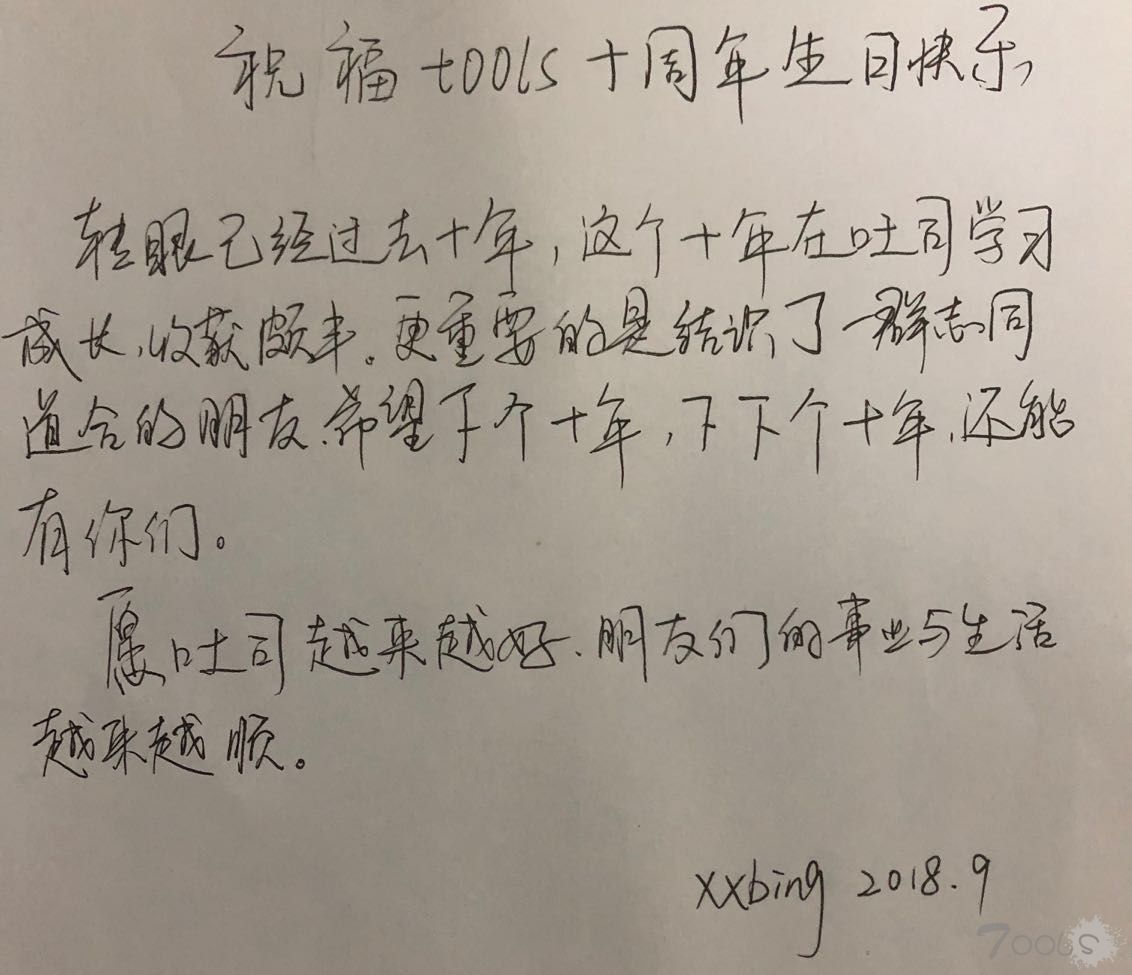 祝福t00ls十周年生日快乐
转眼已经过去十年,这个十年在吐司学习
成长,收获颇丰。更重要的是结识了一群志同
道合的朋友.希望下个十年,下下个十年,还能
有你们。
愿吐司越来越好.朋友们的事业与生活
越来越顺。
xxbing 2018.9
T00LS